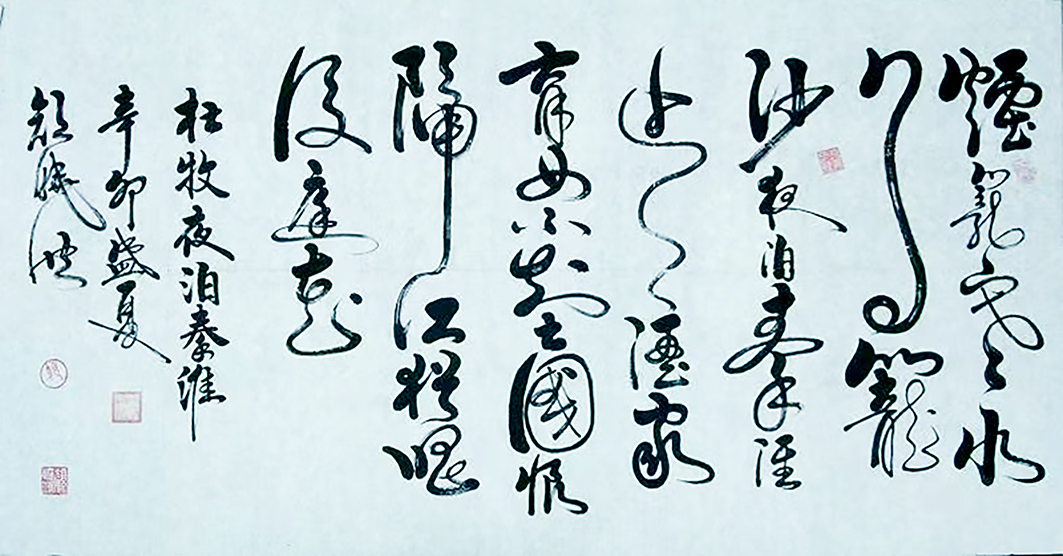 煙籠寒水
月籠
沙夜泊秦淮
近酒家
商女不知亡國恨
隔江猶唱
後庭花
杜牧夜泊秦淮
辛卯盛夏